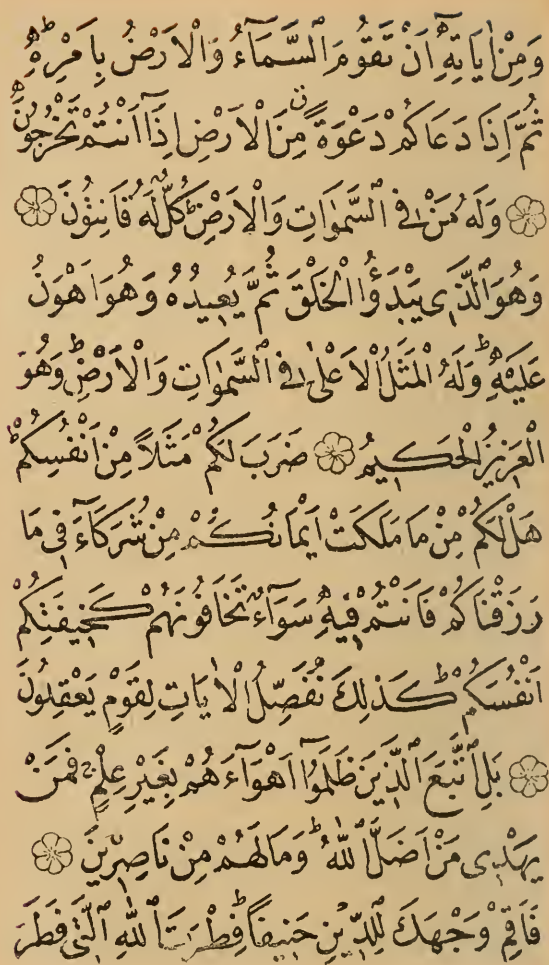 وَمِنْ اٰيَاتِهٖٓ اَنْ تَقُومَ السَّمَآءُ وَالْاَرْضُ بِاَمْرِهٖؕ
ثُمَّ اِذَا دَعَاكُمْ دَعْوَةً ۗ مِنَ الْاَرْضِ اِذَٓا اَنْتُمْ تَخْرُجُونَ
۝ وَلَهُ مَنْ فِى السَّمٰوَاتِ وَالْاَرْضِؕ كُلٌّ لَهُ قَانِتُونَ ۝
وَهُوَ الَّذِى يَبْدَؤُا الْخَلْقَ ثُمَّ يُعِيدُهُ وَهُوَ اَهْوَنُ
عَلَيْهِؕ وَلَهُ الْمَثَلُ الْاَعْلٰى فِى السَّمٰوَاتِ وَالْاَرْضِؕ وَهُوَ
الْعَزِيزُ الْحَكِيمُ ۝ ضَرَبَ لَكُمْ مَثَلاً مِنْ اَنْفُسِكُمْؕ
هَلْ لَكُمْ مِنْ مَا مَلَكَتْ اَيْمَانُكُمْ مِنْ شُرَكَآءَ فِى مَا
رَزَقْنَاكُمْ فَاَنْتُمْ فِيهِ سَوَآءٌ تَخَافُونَهُمْ كَخِيفَتِكُمْ
اَنْفُسَكُمْؕ كَذٰلِكَ نُفَصِّلُ الْاٰيَاتِ لِقَوْمٍ يَعْقِلُونَ
۝ بَلِ اتَّبَعَ الَّذِينَ ظَلَمُٓوا اَهْوَآءَهُمْ بِغَيْرِ عِلْمٍۚ فَمَنْ
يَهْدِى مَنْ اَضَلَّ اللّٰهُؕ وَمَا لَهُمْ مِنْ نَاصِرِينَ ۝
فَاَقِمْ وَجْهَكَ لِلدِّينِ حَنِيفاًؕ فِطْرَتَ اللّٰهِ الَّتِى فَطَرَ